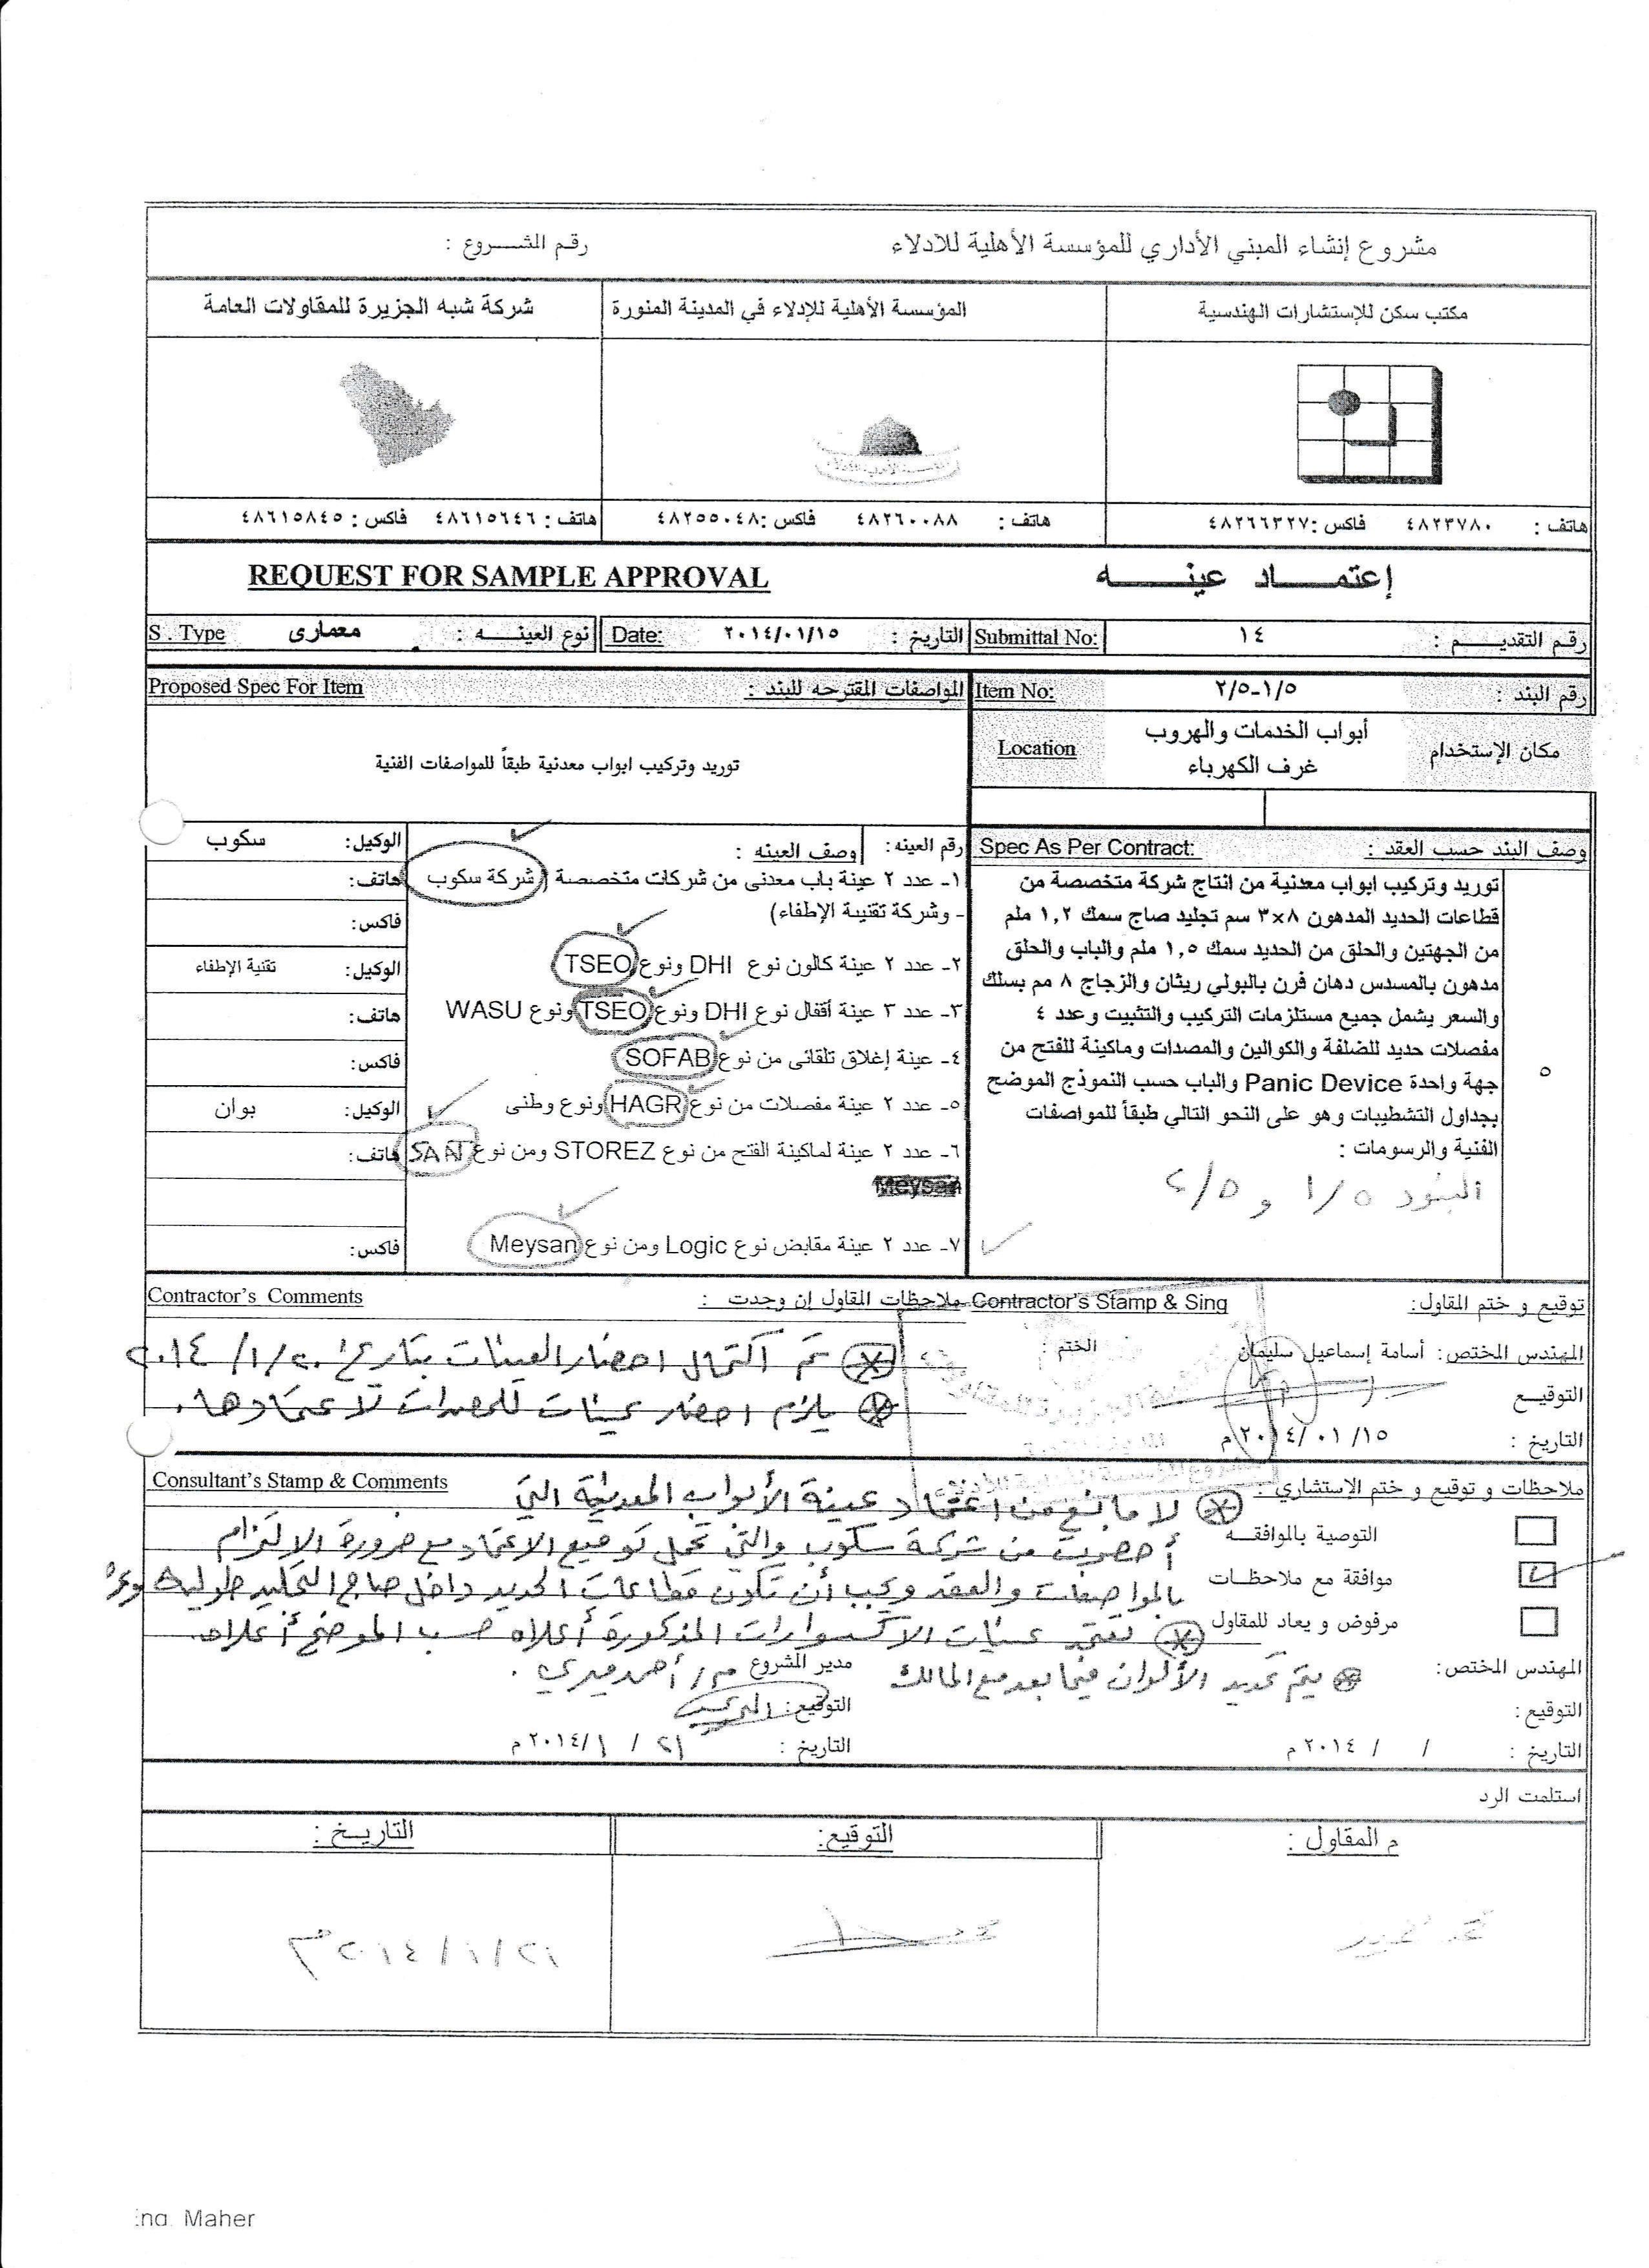 مشروع إنشاء المبني الأداري للمؤسسة الأهلية للادلاء رقم الشـــروع :
مكتب سكن للإستشارات الهندسية
المؤسسة الأهلية للإدلاء في المدينة المنورة
شركة شبه الجزيرة للمقاولات العامة
هاتف : ٤٨٢٣٧٨٠ فاكس :٤٨٢٦٦٣٢٧
هاتف : ٤٨٢٦٠٠٨٨ فاكس :٤٨٢٥٥٠٤٨
هاتف : ٤٨٦١٥٦٤٦ فاكس : ٤٨٦١٥٨٤٥
إعتمـــاد عينـــه REQUEST FOR SAMPLE APPROVAL
رقم التقديـــم : ١٤ Submittal No: التاريخ : ٢٠١٤/٠١/١٥ Date: نوع العينـــه : معمارى S . Type
رقم البند : ٢/٥-١/٥ Item No: المواصفات المقترحه للبند : Proposed Spec For Item
مكان الإستخدام أبواب الخدمات والهروب Location
غرف الكهرباء
توريد وتركيب ابواب معدنية طبقاً للمواصفات الفنية
وصف البند حسب العقد : Spec As Per Contract:
توريد وتركيب ابواب معدنية من انتاج شركة متخصصة من
قطاعات الحديد المدهون ٨×٣ سم تجليد صاج سمك ١,٢ ملم
من الجهتين والحلق من الحديد سمك ١,٥ ملم والباب والحلق
مدهون بالمسدس دهان فرن بالبولي ريثان والزجاج ٨ مم بسلك
والسعر يشمل جميع مستلزمات التركيب والتثبيت وعدد ٤
مفصلات حديد للضلفة والكوالين والمصدات وماكينة للفتح من
جهة واحدة Panic Device والباب حسب النموذج الموضح
بجداول التشطيبات وهو على النحو التالي طبقاً للمواصفات
الفنية والرسومات :
٥
البنود ١/٥ و ٢/٥
رقم العينه: وصف العينه :
١- عدد ٢ عينة باب معدنى من شركات متخصصة (شركة سكوب
- وشركة تقنيىة الإطفاء)
٢- عدد ٢ عينة كالون نوع DHI ونوع TSEO
٣- عدد ٣ عينة أقفال نوع DHI ونوع TSEO ونوع WASU
٤- عينة إغلاق تلقائى من نوع SOFAB
٥- عدد ٢ عينة مفصلات من نوع HAGR ونوع وطنى
٦- عدد ٢ عينة لماكينة الفتح من نوع STOREZ ومن نوع SAAN
Meysan
٧- عدد ٢ عينة مقابض نوع Logic ومن نوع Meysan
الوكيل: سكوب
هاتف:
فاكس:
الوكيل: تقنية الإطفاء
هاتف:
فاكس:
الوكيل: بوان
هاتف:
فاكس:
توقيع و ختم المقاول: Contractor's Stamp & Sing ملاحظات المقاول إن وجدت : Contractor's Comments
المهندس المختص: أسامة إسماعيل سليمان الختم :
التوقيـع
التاريخ : ٢٠١٤/٠١/١٥ م
تم اكتمال احضار العينات بتاريخ ٢٠١٤/١/٢٠
يلزم احضار عينات للمصدات لاعتمادها.
ملاحظات و توقيع و ختم الإستشاري : Consultant's Stamp & Comments
التوصية بالموافقـــه
موافقة مع ملاحظـات
مرفوض و يعاد للمقاول
لا مانع من اعتماد عينة الأبواب المعدنية التي
أحضرت من شركة سكوب والتي تحمل توقيع الاعتماد مع ضرورة الالتزام
بالمواصفات والعقد ويجب أن تكون قطاعات الحديد داخل صاج التجليد طولية
تعتمد عينات الاكسسوارات المذكورة أعلاه حسب الموضح أعلاه.
يتم تحديد الألوان فيما بعد مع المالك
المهندس المختص: مدير المشروع م/ أحمد
التوقيع: التوقيع:
التاريخ : / / ٢٠١٤ م التاريخ : ٢١ / ١/٢٠١٤ م
استلمت الرد
م المقاول : التوقيع: التاريـخ :
٢١/١/٢٠١٤م
Maher